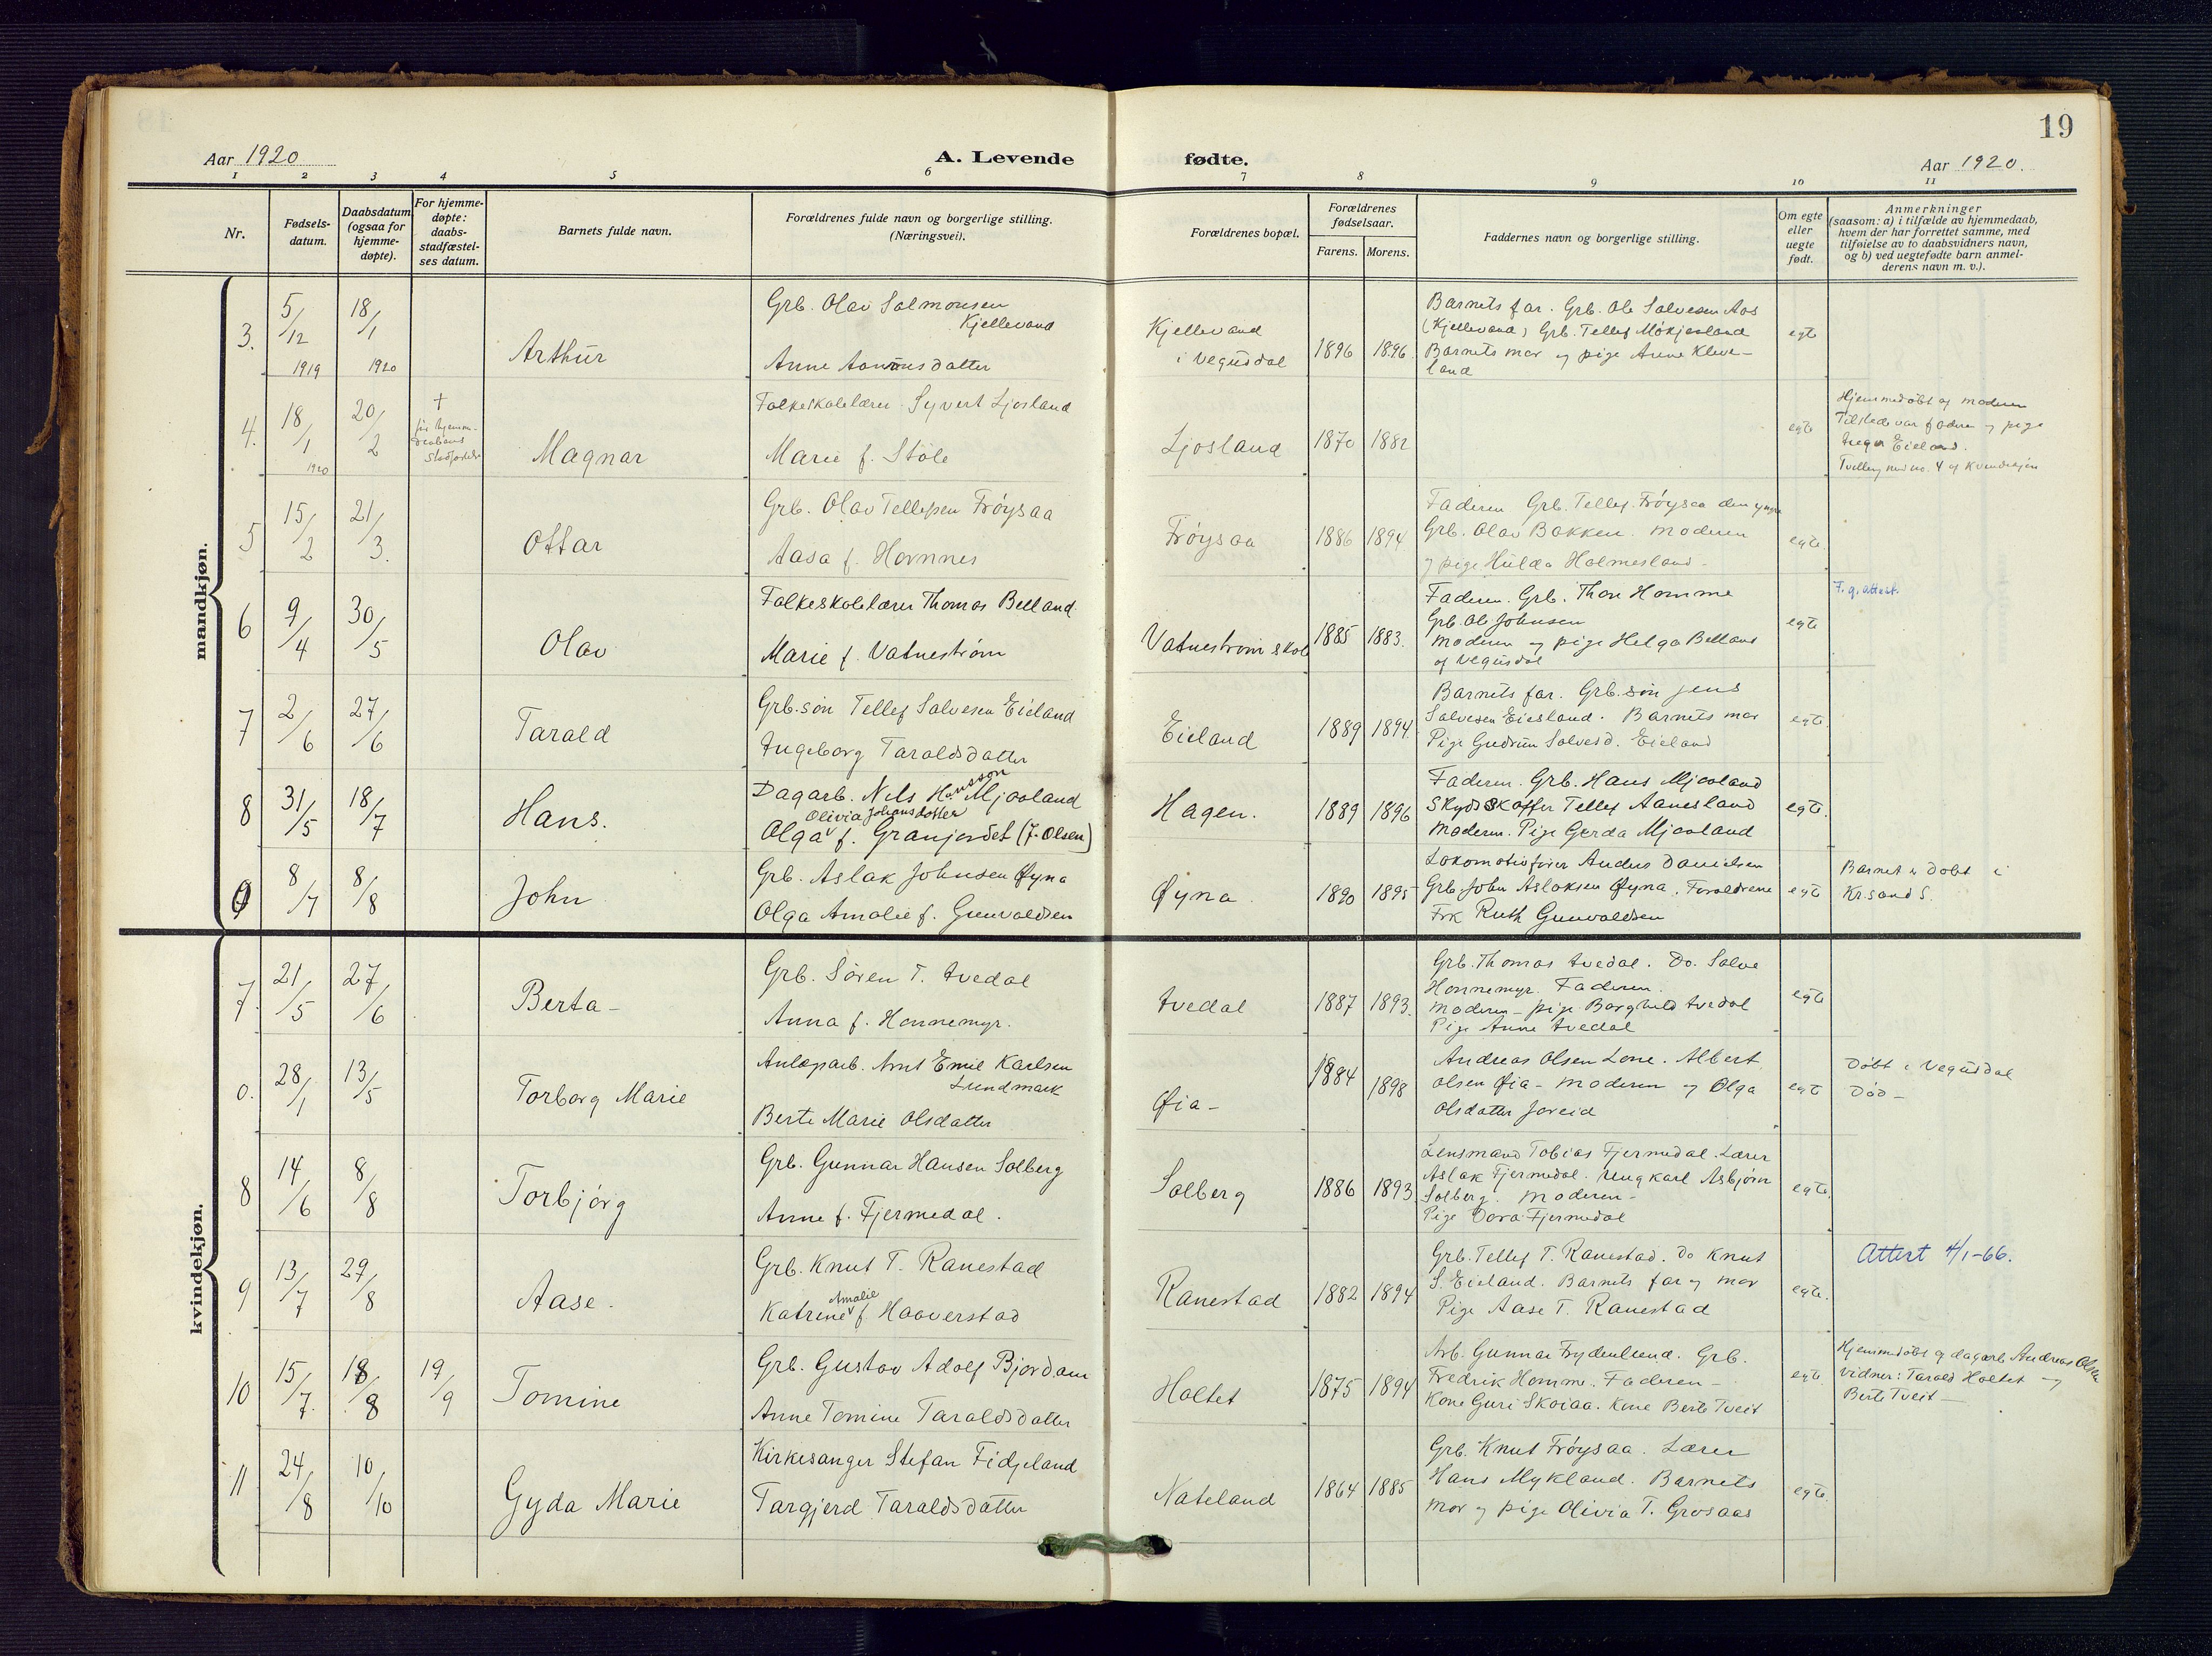 19
Aar 1920
A. Levende
fødte.
Aar 1920.
1 2 3 4 5 6 7 8 9 10 11
Nr.
Fødsels-
datum.
Daabsdatum
(ogsaa for
hjemme-
døpte).
For hjemme-
døpte:
daabs-
stadfæstel-
ses datum.
Barnets fulde navn.
Forældrenes fulde navn og borgerlige stilling.
(Næringsvei).
Forældrenes bopæl.
Forældrenes
fødselsaar.
Farens. Morens.
Faddernes navn og borgerlige stilling.
Om egte
eller
uegte
født.
Anmerkninger
(saasom: a) i tilfælde av hjemmedaab,
hvem der har forrettet samme, med
tilføielse av to daabsvidners navn,
og b) ved uegtefødte barn anmel-
derens navn m. v.).
mandkjøn.
3.
5/12 1919
18/1 1920
Arthur
Grb. Olav Salmonsen
Kjellevand
Anne Aanonsdatter
Kjellevand
i Vegusdal
1896 1896.
Barnets far. Grb. Ole Salvesen Aas
(Kjellevand) Grb. Tellef Mökjaaland
Barnets mor og pige Anne Kleve-
land
egte
4.
18/1 1920
20/2
†
før hjemme-
daabens
Magnar
Folkeskolelærer Syvert Ljosland
Marie f. Stöle
Ljosland
1870 1882
egte
Hjemmedöbt af moderen
Tilstede var faderen og pige
Inga Eieland.
Tvilling med no. 4 af kvindekjön
5
15/2
21/3.
Ottar
Grb. Olav Tellefsen Fröysaa
Aasa f. Hornnes
Fröysaa
1886 1894
Faderen Grb. Tellef Fröysaa den yngre
Grb. Olav Bakken. Moderen
og pige Hulda Holmesland.
egte.
6
9/4
30/5
Olav
Folkeskolelærer Thomas Belland
Marie f. Vatnestrøm
Vatnestrøm skole
1885 1883.
Faderen. Grb. Thore Homme
Grb. Ole Johnsen
Moderen og pige Helga Belland
af Vegusdal
egte
F. g. attest.
7
2/6
27/6
Tarald
Grb.sön Tellef Salvesen Eieland
Ingeborg Taraldsdatter
Eieland
1889 1894.
Barnets far. Grb.sön Jens
Salvesen Eiesland. Barnets mor
Pige Gudrun Salvesd. Eieland
egte.
8
31/5
18/7
Hans.
Dagarb. Nils Hansson Mjaaland
Olivia Johansdotter
Olga f. Granjordet (f. Olsen)
Hagen.
1889 1896
Faderen. Grb. Hans Mjaaland
Skydsskaffer Tellef Aanesland
Moderen. Pige Gerda Mjaaland
egte.
0
8/7
8/8
John
Grb. Aslak Johnsen Øyna
Olga Amalie f. Gunvaldsen
Øyna
1890 1895
Lokomotivfører Anders Danielsen
Grb John Aslaksen Øyna. Forældrene
Frk Ruth Gunvaldsen
egte
Barnet er döbt i
Kr.sand S.
kvindekjøn.
7.
21/5
27/6
Berta
Grb. Sören T. Tvedal
Anna f. Honnemyr.
Tvedal
1887 1893.
Grb. Thomas Tvedal. Do. Salve
Honnemyr. Faderen.
Moderen – pige Borghild Tvedal
Pige Anne Tvedal
egte
0.
28/1
13/5
Torborg Marie
Anlægsarb. Arnt Emil Karlsen
Lundmark
Berte Marie Olsdatter
Øia
1884 1898
Andreas Olsen Lone. Albert
Olsen Øia – Moderen og Olga
Olsdatter Joreid
egte
Döbt i Vegusdal
Död –
8
14/6
8/8
Torbjörg
Grb. Gunnar Hansen Solberg
Anne f. Fjermedal.
Solberg
1886 1893.
Lensmand Tobias Fjermedal. Lærer
Aslak Fjermedal. Ungkarl Asbjörn
Solberg. Moderen –
Pige Dora Fjermedal
egte.
9
13/7
29/8
Aase.
Grb. Knut T. Ranestad
Amalie
Katrine f. Haaverstad
Ranestad
1882 1894
Grb. Tellef T. Ranestad. Do Knut
S. Eieland. Barnets far og mor
Pige Aase T. Ranestad
egte.
Attest 4/1-66.
10
15/7.
18/8
19/9
Tomine
Grb. Gustav Adolf Bjordam
Anne Tomine Taraldsdatter
Holtet
1875 1894
Arb. Gunnar Frydenlund. Grb.
Fredrik Homme. Faderen –
Kone Guri Skoiaa. Kone Berte Tveit
egte.
Hjemmedöbt af dagarb. Andreas Olsen
Vidner: Tarald Holtet og
Berte Tveit –
11
24/8
10/10
Gyda Marie
Kirkesanger Stefan Fidjeland
Targjerd Taraldsdatter
Nateland
1864 1885
Grb. Knut Fröysaa. Lærer
Hans Mykland. Barnets
mor og pige Olivia T. Grosaas
egte.